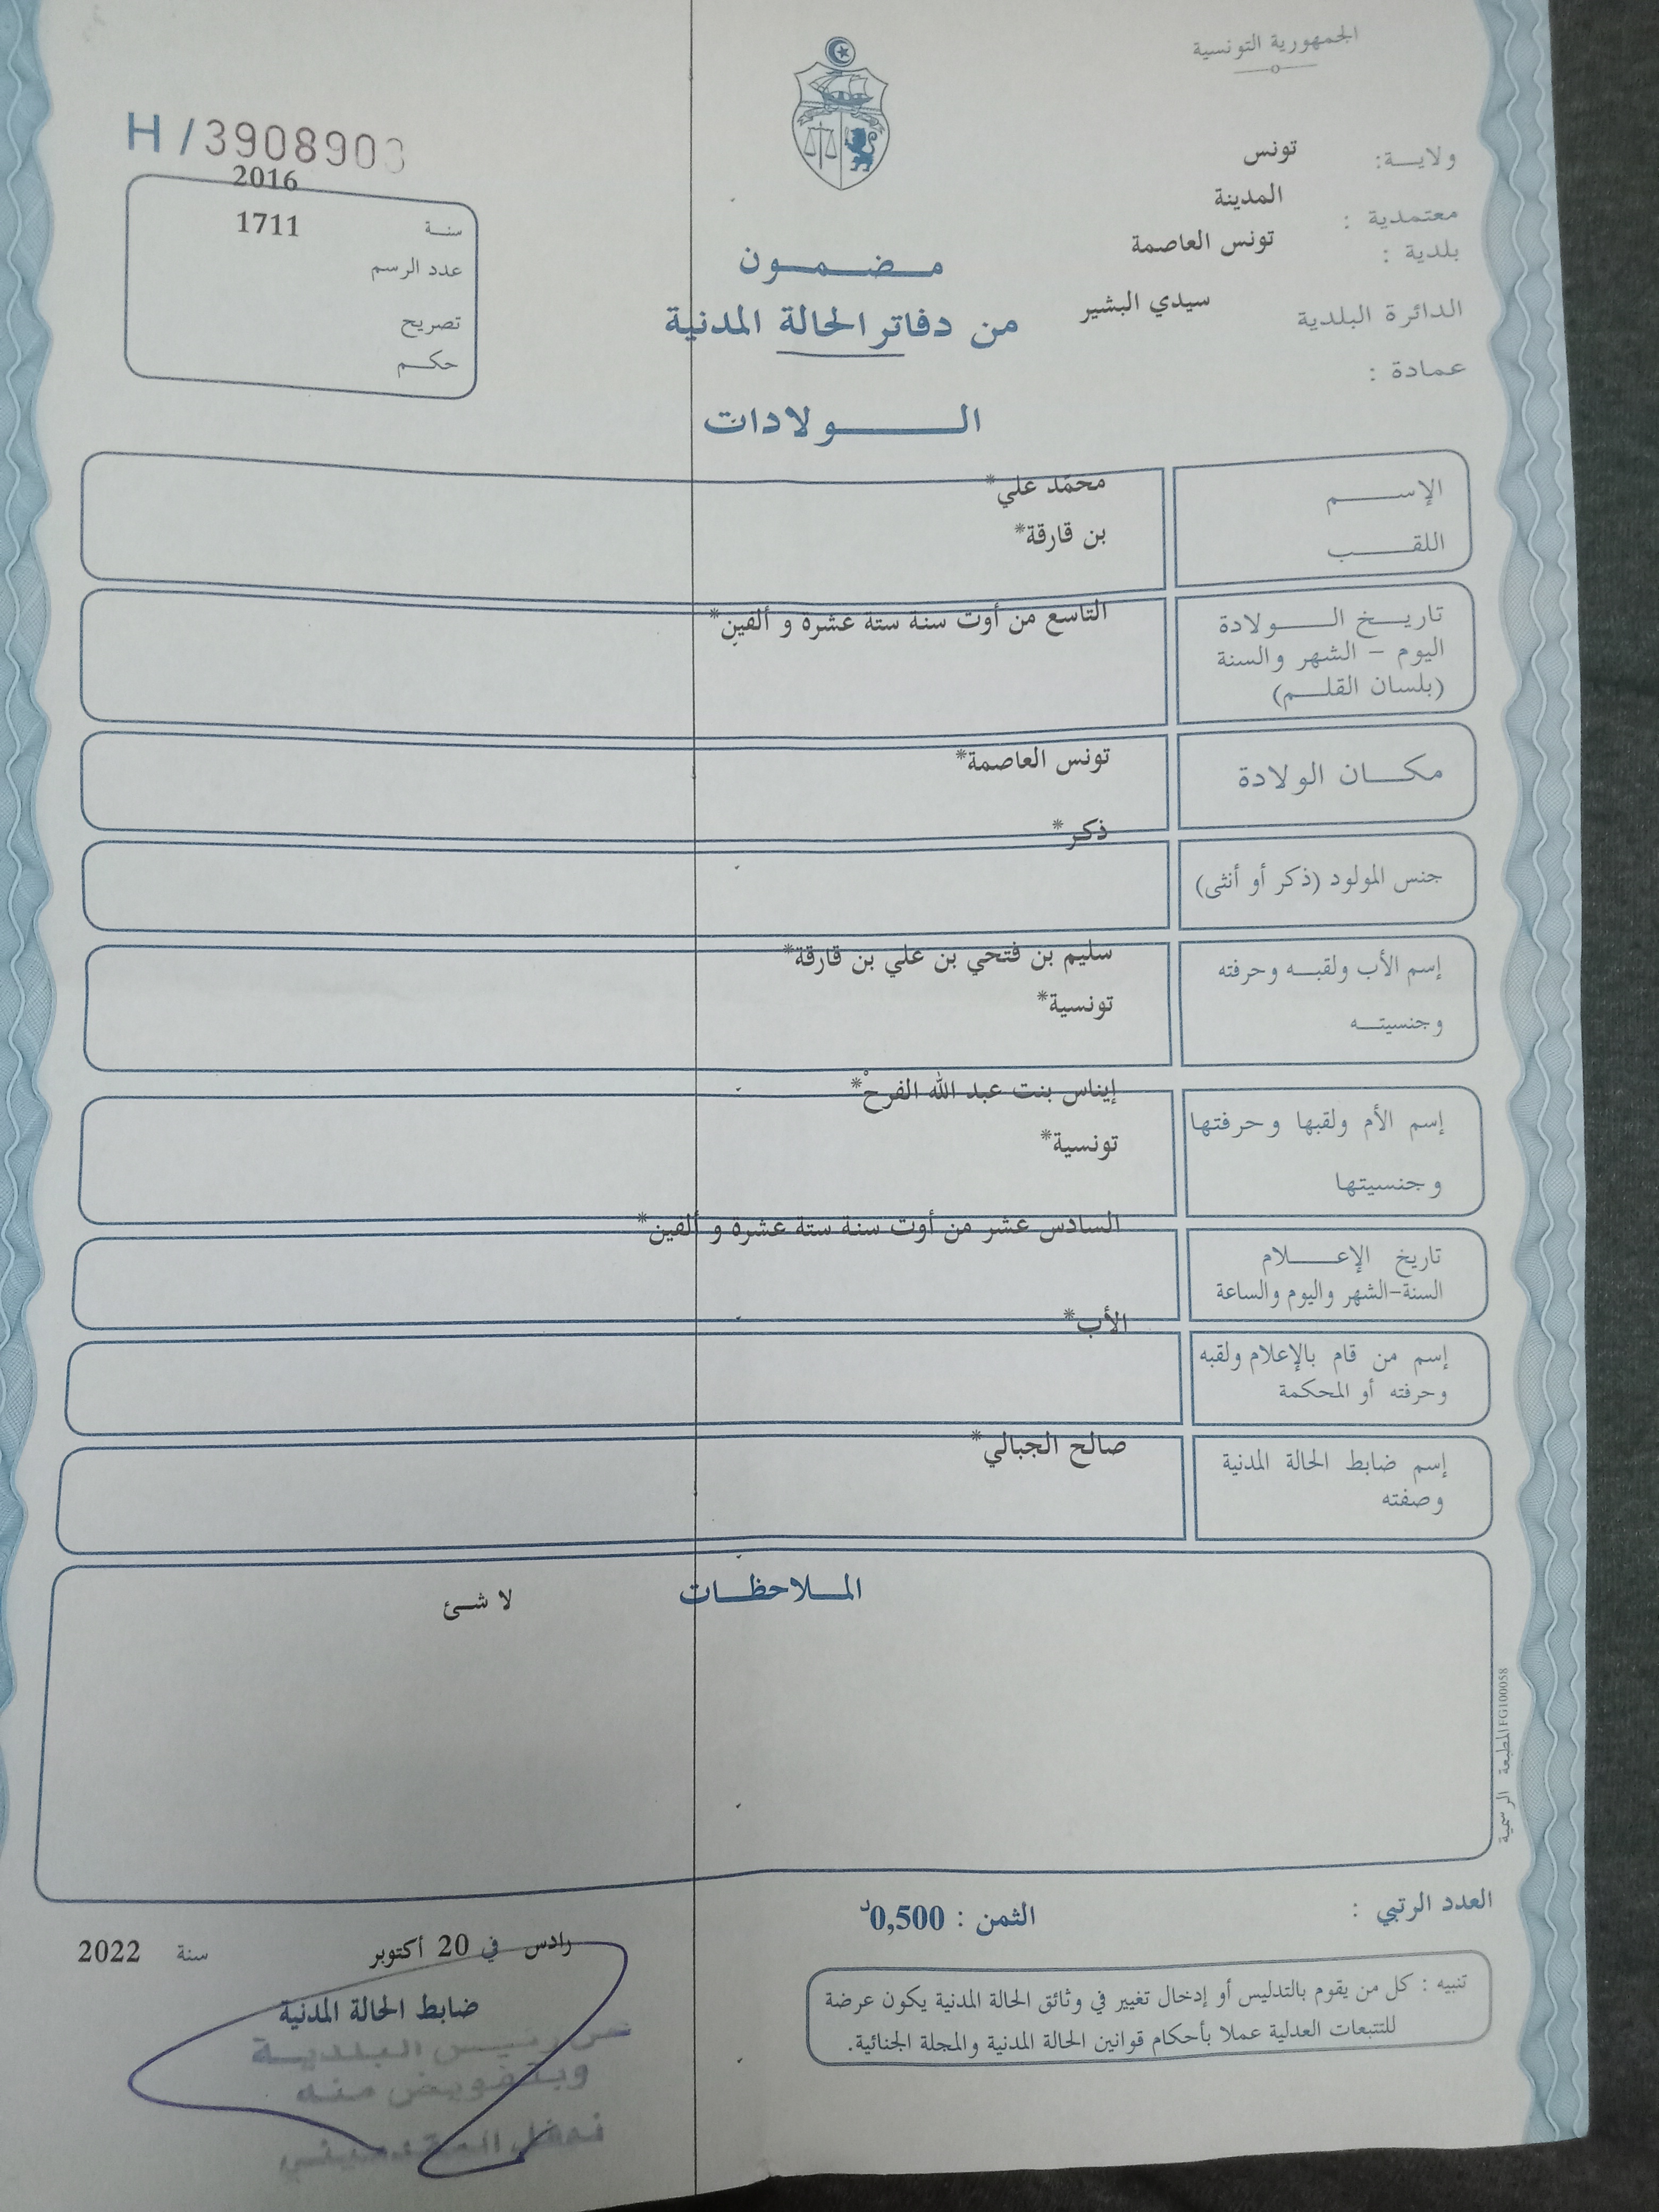 الجمهورية التونسية
ولايــة: تونس
معتمدية : المدينة
بلدية : تونس العاصمة
الدائرة البلدية سيدي البشير
عمادة :
H / 3908903
2016
سنة 1711
عدد الرسم
تصريح
حكم
مضمون
من دفاتر الحالة المدنية
الولادات
الإسم محمّد علي*
اللقب بن قارقة*
تاريخ الولادة التاسع من أوت سنة ستة عشرة و ألفين*
اليوم - الشهر والسنة
(بلسان القلم)
مكان الولادة تونس العاصمة*
ذكر*
جنس المولود (ذكر أو أنثى)
إسم الأب ولقبه وحرفته سليم بن فتحي بن علي بن قارقة*
وجنسيته تونسية*
إيناس بنت عبد الله الفرحْ*
إسم الأم ولقبها وحرفتها
تونسية*
وجنسيتها
السادس عشر من أوت سنة ستة عشرة و ألفين*
تاريخ الإعلام
السنة-الشهر واليوم والساعة
الأب*
إسم من قام بالإعلام ولقبه
وحرفته أو المحكمة
صالح الجبالي*
إسم ضابط الحالة المدنية
وصفته
الملاحظات لا شئ
المطبعة الرسمية FG100058
العدد الرتبي :
الثمن : 0,500د
رادس في 20 أكتوبر سنة 2022
ضابط الحالة المدنية
عن رئيس البلدية
وبتفويض منه
تنبيه : كل من يقوم بالتدليس أو إدخال تغيير في وثائق الحالة المدنية يكون عرضة
للتتبعات العدلية عملا بأحكام قوانين الحالة المدنية والمجلة الجنائية.